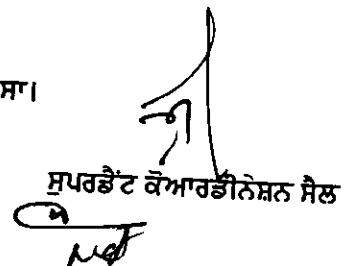 ਸਾ।
ਸੁਪਰਡੈਂਟ ਕੋਆਰਡੀਨੇਸ਼ਨ ਸੈਲ